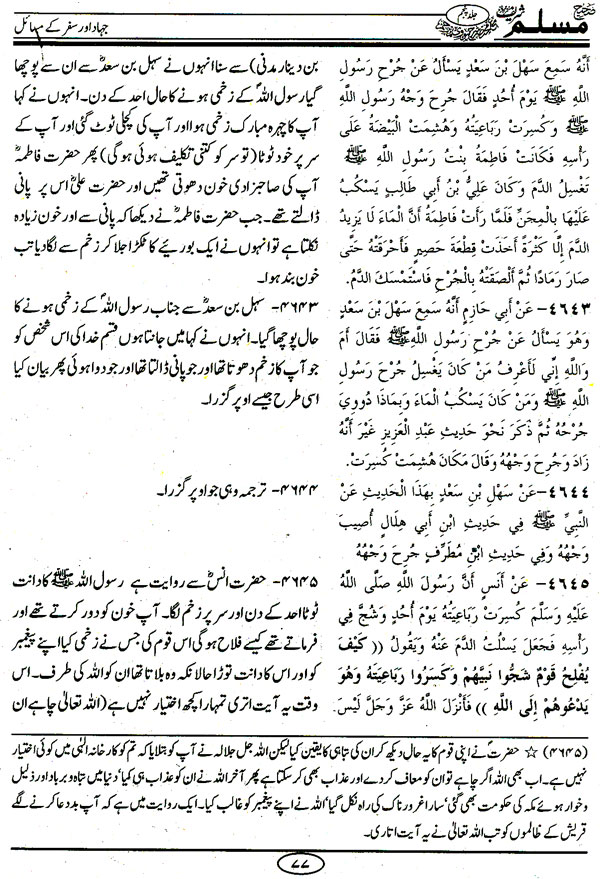 صحیح مسلم شریف
جلد پنجم
جہاد اور سفر کے مسائل
أَنَّهُ سَمِعَ سَهْلَ بْنَ سَعْدٍ يَسْأَلُ عَنْ جُرْحِ رَسُولِ اللَّهِ
ﷺ يَوْمَ أُحُدٍ فَقَالَ جُرِحَ وَجْهُ رَسُولِ اللَّهِ
ﷺ وَكُسِرَتْ رَبَاعِيَتُهُ وَهُشِمَتْ الْبَيْضَةُ عَلَى
رَأْسِهِ فَكَانَتْ فَاطِمَةُ بِنْتُ رَسُولِ اللَّهِ ﷺ
تَغْسِلُ الدَّمَ وَكَانَ عَلِيُّ بْنُ أَبِي طَالِبٍ يَسْكُبُ
عَلَيْهَا بِالْمِجَنِّ فَلَمَّا رَأَتْ فَاطِمَةُ أَنَّ الْمَاءَ لَا يَزِيدُ
الدَّمَ إِلَّا كَثْرَةً أَخَذَتْ قِطْعَةَ حَصِيرٍ فَأَحْرَقَتْهُ حَتَّى
صَارَ رَمَادًا ثُمَّ أَلْصَقَتْهُ بِالْجُرْحِ فَاسْتَمْسَكَ الدَّمُ.
٤٦٤٣– عَنْ أَبِي حَازِمٍ أَنَّهُ سَمِعَ سَهْلَ بْنَ سَعْدٍ
وَهُوَ يَسْأَلُ عَنْ جُرْحِ رَسُولِ اللَّهِ ﷺ فَقَالَ أَمَ
وَاللَّهِ إِنِّي لَأَعْرِفُ مَنْ كَانَ يَغْسِلُ جُرْحَ رَسُولِ
اللَّهِ ﷺ وَمَنْ كَانَ يَسْكُبُ الْمَاءَ وَبِمَاذَا دُووِيَ
جُرْحُهُ ثُمَّ ذَكَرَ نَحْوَ حَدِيثِ عَبْدِ الْعَزِيزِ غَيْرَ أَنَّهُ
زَادَ وَجُرِحَ وَجْهُهُ وَقَالَ مَكَانَ هُشِمَتْ كُسِرَتْ.
٤٦٤٤– عَنْ سَهْلِ بْنِ سَعْدٍ بِهَذَا الْحَدِيثِ عَنْ
النَّبِيِّ ﷺ فِي حَدِيثِ ابْنِ أَبِي هِلَالٍ أُصِيبَ
وَجْهُهُ وَفِي حَدِيثِ ابْنِ مُطَرِّفٍ جُرِحَ وَجْهُهُ
٤٦٤٥– عَنْ أَنَسٍ أَنَّ رَسُولَ اللَّهِ صَلَّى اللَّهُ
عَلَيْهِ وَسَلَّمَ كُسِرَتْ رَبَاعِيَتُهُ يَوْمَ أُحُدٍ وَشُجَّ فِي
رَأْسِهِ فَجَعَلَ يَسْلُتُ الدَّمَ عَنْهُ وَيَقُولُ (( كَيْفَ
يُفْلِحُ قَوْمٌ شَجُّوا نَبِيَّهُمْ وَكَسَرُوا رَبَاعِيَتَهُ وَهُوَ
يَدْعُوهُمْ إِلَى اللَّهِ )) فَأَنْزَلَ اللَّهُ عَزَّ وَجَلَّ لَيْسَ.
بن دینار مدنی) سے سنا انہوں نے سہل بن سعدؓ سے ان سے پوچھا
گیا رسول اللہؐ کے زخمی ہونے کا حال احد کے دن۔ انہوں نے کہا
آپ کا چہرہ مبارک زخمی ہوا اور آپ کی کچلی ٹوٹ گئی اور آپ کے
سر پر خود ٹوٹا (تو سر کو کتنی تکلیف ہوئی ہوگی) پھر حضرت فاطمہؓ
آپ کی صاحبزادی خون دھوتی تھیں اور حضرت علیؓ اس پر پانی
ڈالتے تھے۔ جب حضرت فاطمہؓ نے دیکھا کہ پانی سے اور خون زیادہ
نکلتا ہے تو انہوں نے ایک بورئیے کا ٹکڑا جلا کر زخم سے لگا دیا تب
خون بند ہوا۔
۴۶۴۳– سہل بن سعدؓ سے جناب رسول اللہؐ کے زخمی ہونے کا
حال پوچھا گیا۔ انہوں نے کہا میں جانتا ہوں قسم خدا کی اس شخص کو
جو آپ کا زخم دھوتا تھا اور جو پانی ڈالتا تھا اور جو دوا ہوئی پھر بیان کیا
اسی طرح جیسے اوپر گزرا۔
۴۶۴۴– ترجمہ وہی جو اوپر گزرا۔
۴۶۴۵– حضرت انسؓ سے روایت ہے رسول اللہ ﷺ کا دانت
ٹوٹا احد کے دن اور سر پر زخم لگا۔ آپ خون کو دور کرتے تھے اور
فرماتے تھے کیسے فلاح ہوگی اس قوم کی جس نے زخمی کیا اپنے پیغمبر
کو اور اس کا دانت توڑا حالانکہ وہ بلاتا تھا ان کو اللہ کی طرف۔ اس
وقت یہ آیت اتری تمہارا کچھ اختیار نہیں ہے (اللہ تعالیٰ چاہے ان
(۴۶۴۵) ☆ حضرتؐ نے اپنی قوم کا یہ حال دیکھ کر ان کی تباہی کا یقین کیا لیکن اللہ جل جلالہ نے آپ کو بتلایا کہ تم کو کارخانہ الٰہی میں کوئی اختیار
نہیں ہے۔ اب بھی اللہ اگر چاہے تو ان کو معاف کردے اور عذاب بھی کر سکتا ہے پھر آخر اللہ نے ان کو عذاب ہی کیا' دنیا میں تباہ و برباد اور ذلیل
و خوار ہوئے مکہ کی حکومت بھی گئی' سارا غرور ناک کی راہ نکل گیا' اللہ نے اپنے پیغمبر کو غالب کیا۔ ایک روایت میں ہے کہ آپ بددعا کرنے لگے
قریش کے ظالموں کو تب اللہ تعالیٰ نے یہ آیت اتاری۔
۷۷